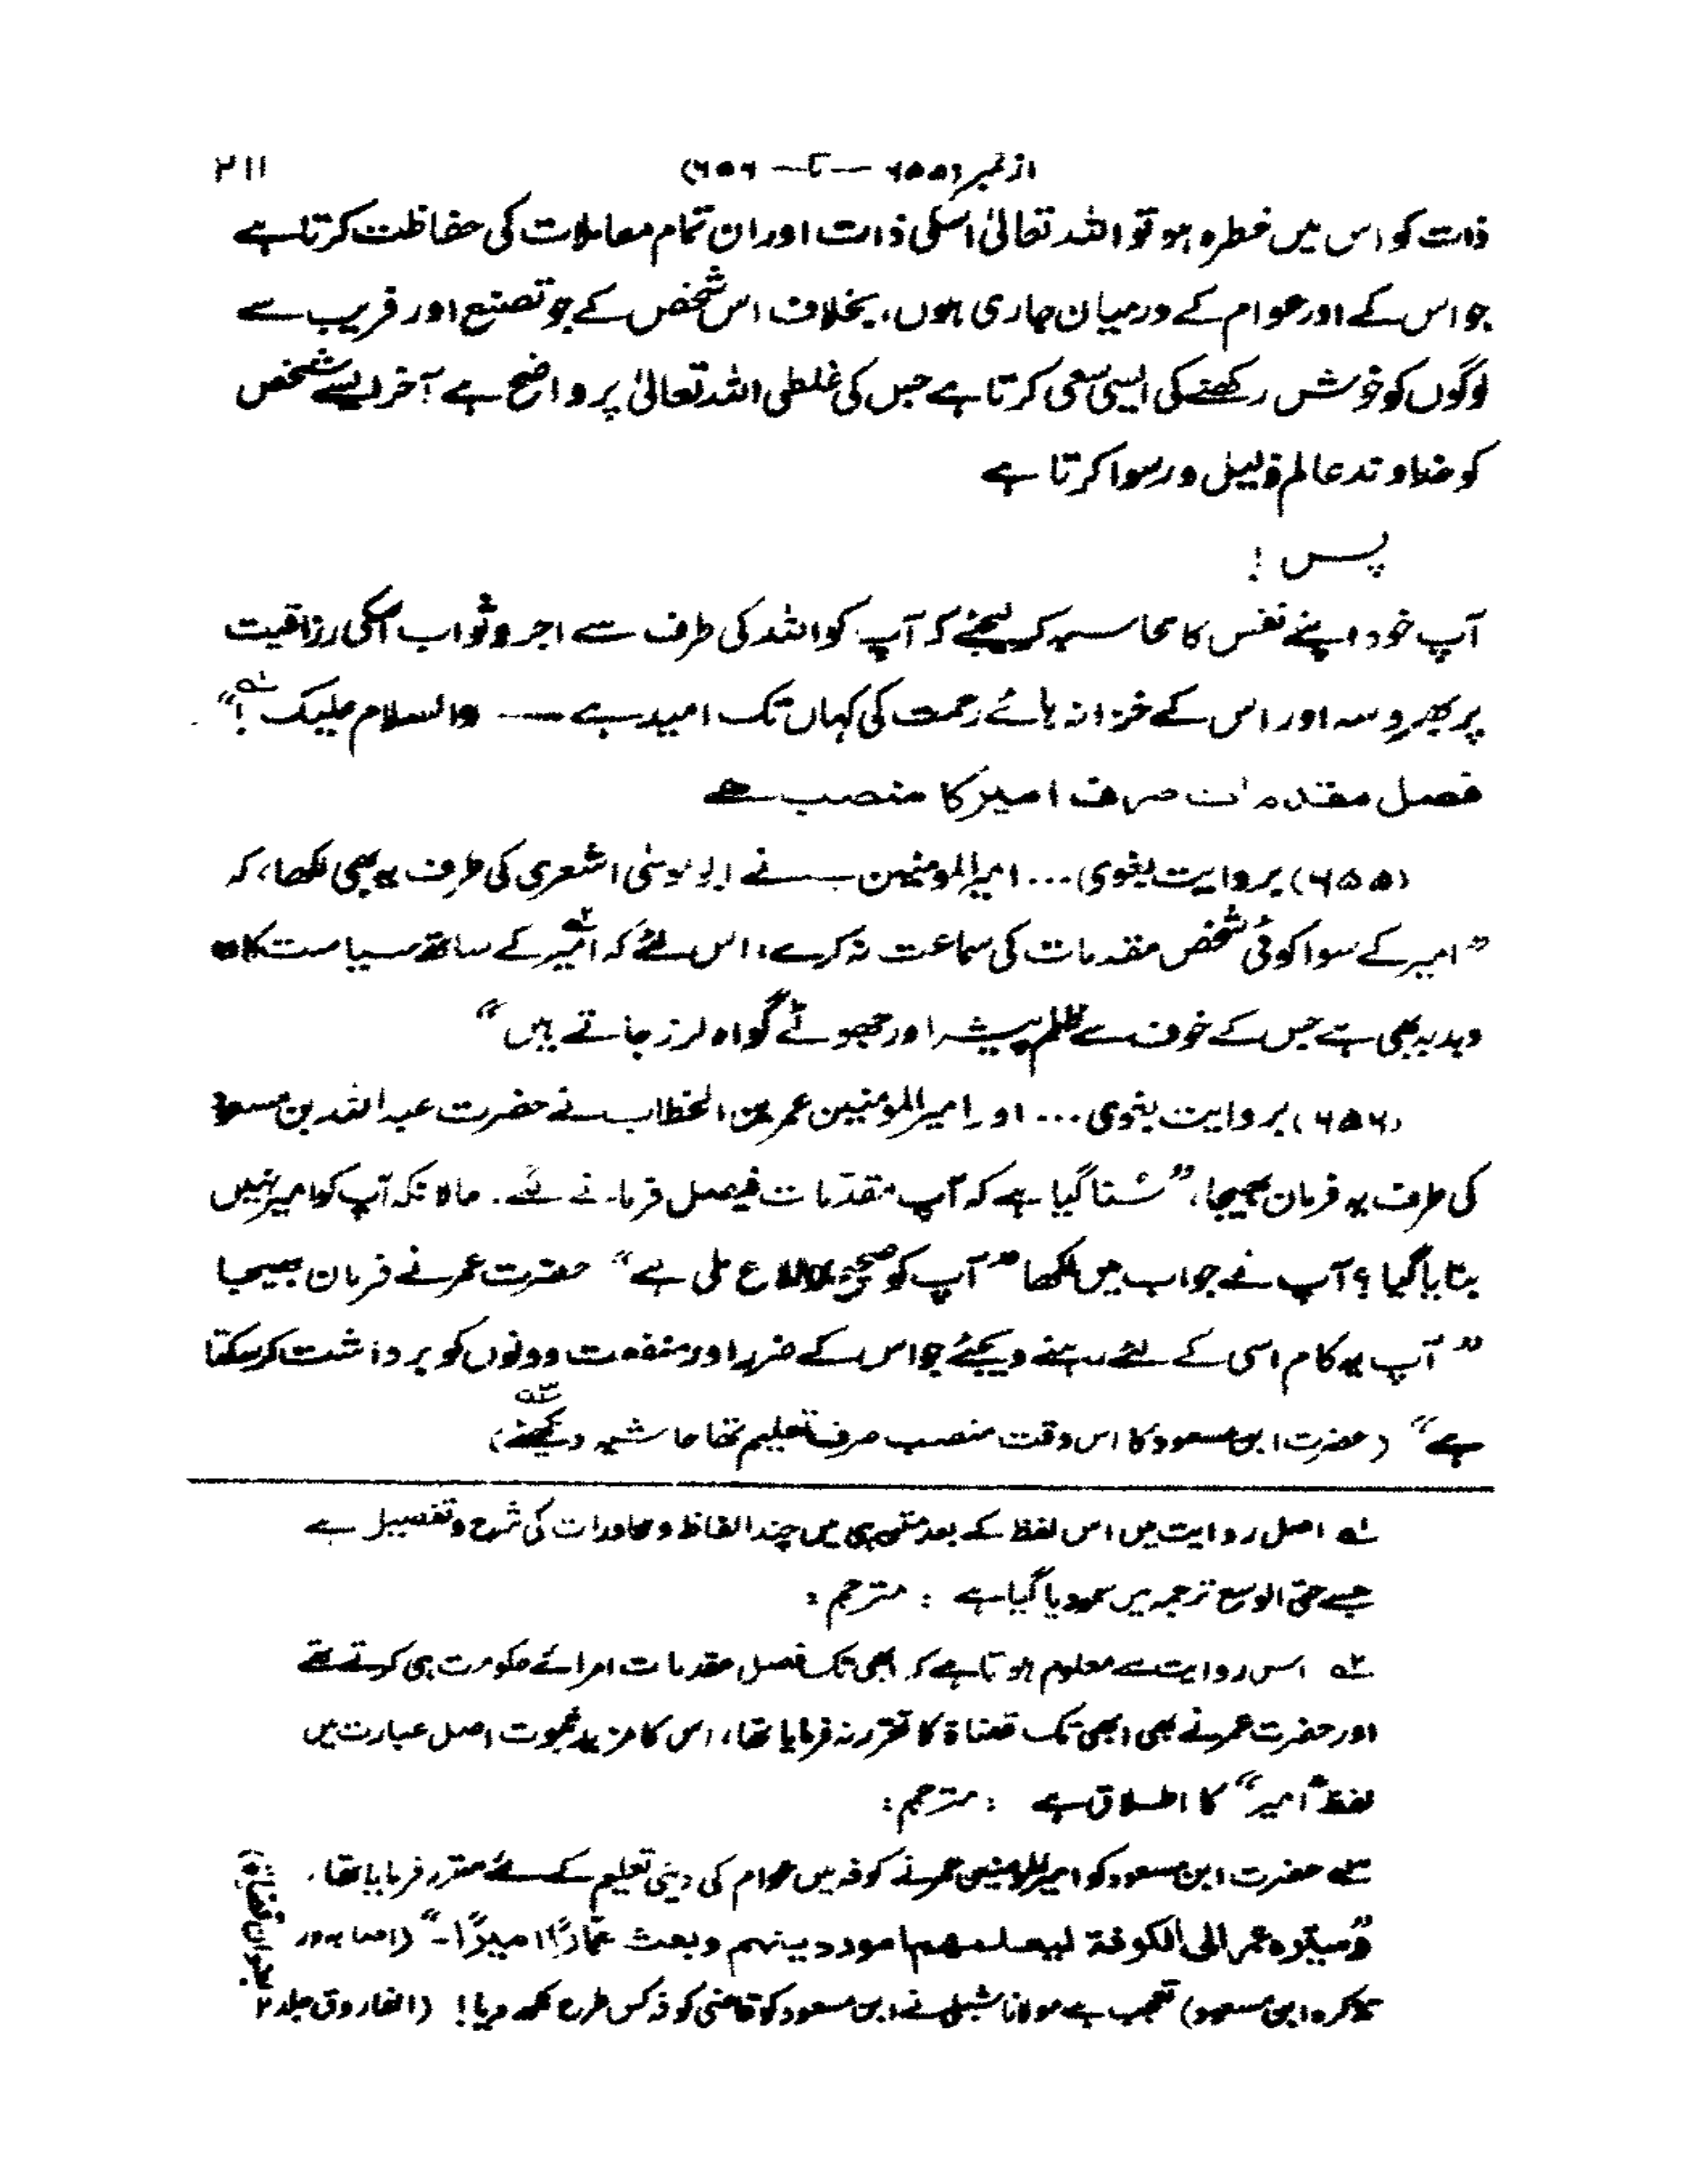 از نمبر (۶۵۵ — تا — ۶۵۶) ۲۱۱
ذات کو اس میں خطرہ ہو تو اللہ تعالیٰ اسکی ذات اور ان تمام معاملات کی حفاظت کرتا ہے
جو اس کے اور عوام کے درمیان جاری ہوں، بخلاف اس شخص کے جو تصنع اور فریب سے
لوگوں کو خوش رکھنے کی ایسی سعی کرتا ہے جس کی غلطی اللہ تعالیٰ پر واضح ہے آخر ایسے شخص
کو خداوند عالم ذلیل و رسوا کرتا ہے
پس !
آپ خود اپنے نفس کا محاسبہ کر لیجئے کہ آپ کو اللہ کی طرف سے اجر و ثواب اسکی رزاقیت
پر بھروسہ اور اس کے خزانہ ہائے رحمت کی کہاں تک امید ہے — والسلام علیک !" ۱؎
فصل مقدمات صرف امیر کا منصب ہے
(۶۵۵) بروایت بغوی... امیرالمومنین نے ابو موسیٰ اشعری کی طرف یہ بھی لکھا، کہ
"امیر کے سوا کوئی شخص مقدمات کی سماعت نہ کرے، اس لئے کہ امیر ۲؎ کے ساتھ سیاست کا وہ
دبدبہ بھی ہے جس کے خوف سے ظلم پیشہ اور جھوٹے گواہ لرز جاتے ہیں"
(۶۵۶) بروایت بغوی... اور امیرالمومنین عمر بن الخطاب نے حضرت عبداللہ بن مسعود
کی طرف یہ فرمان بھیجا، "سُنا گیا ہے کہ آپ مقدمات فیصل فرمانے لگے۔ حالانکہ آپ کو امیر نہیں
بنایا گیا ؟ آپ نے جواب میں لکھا "آپ کو صحیح اطلاع ملی ہے" حضرت عمر نے فرمان بھیجا
"آپ یہ کام اسی کے لئے رہنے دیجئے جو اس کے ضرر اور منفعت دونوں کو برداشت کر سکتا
ہے" (حضرت ابن مسعود کا اس وقت منصب صرف تعلیم تھا حاشیہ دیکھئے) ۳؎
۱؎ اصل روایت میں اس لفظ کے بعد متن ہی میں چند الفاظ و محاورات کی شرح و تفصیل ہے
جسے حتی الوسع ترجمہ میں سمو دیا گیا ہے : مترجم :
۲؎ اس روایت سے معلوم ہوتا ہے کہ ابھی تک فصل مقدمات امرائے حکومت ہی کرتے تھے
اور حضرت عمر نے بھی ابھی تک قضاۃ کا تقرر نہ فرمایا تھا، اس کا مزید ثبوت اصل عبارت میں
لفظ "امیر" کا اطلاق ہے : مترجم :
۳؎ حضرت ابن مسعود کو امیرالمومنین عمر نے کوفہ میں عوام کی دینی تعلیم کے لئے مقرر فرمایا تھا۔
"وسیّرہ عمر الی الکوفة لیعلمھم امور دینھم وبعث عمّارًا امیرًا۔" (اصابہ در
تذکرہ ابن مسعود) تعجب ہے مولانا شبلی نے ابن مسعود کو قاضی کوفہ کس طرح لکھ دیا! (الفاروق جلد ۲